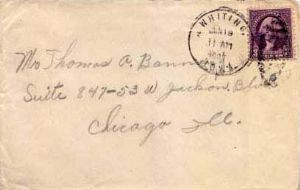 WHITING,
JAN 18
11 AM
IOWA
3 3
Mr Thomas A. Bann
Suite 847-53 W Jackson Blvd
Chicago Ill.